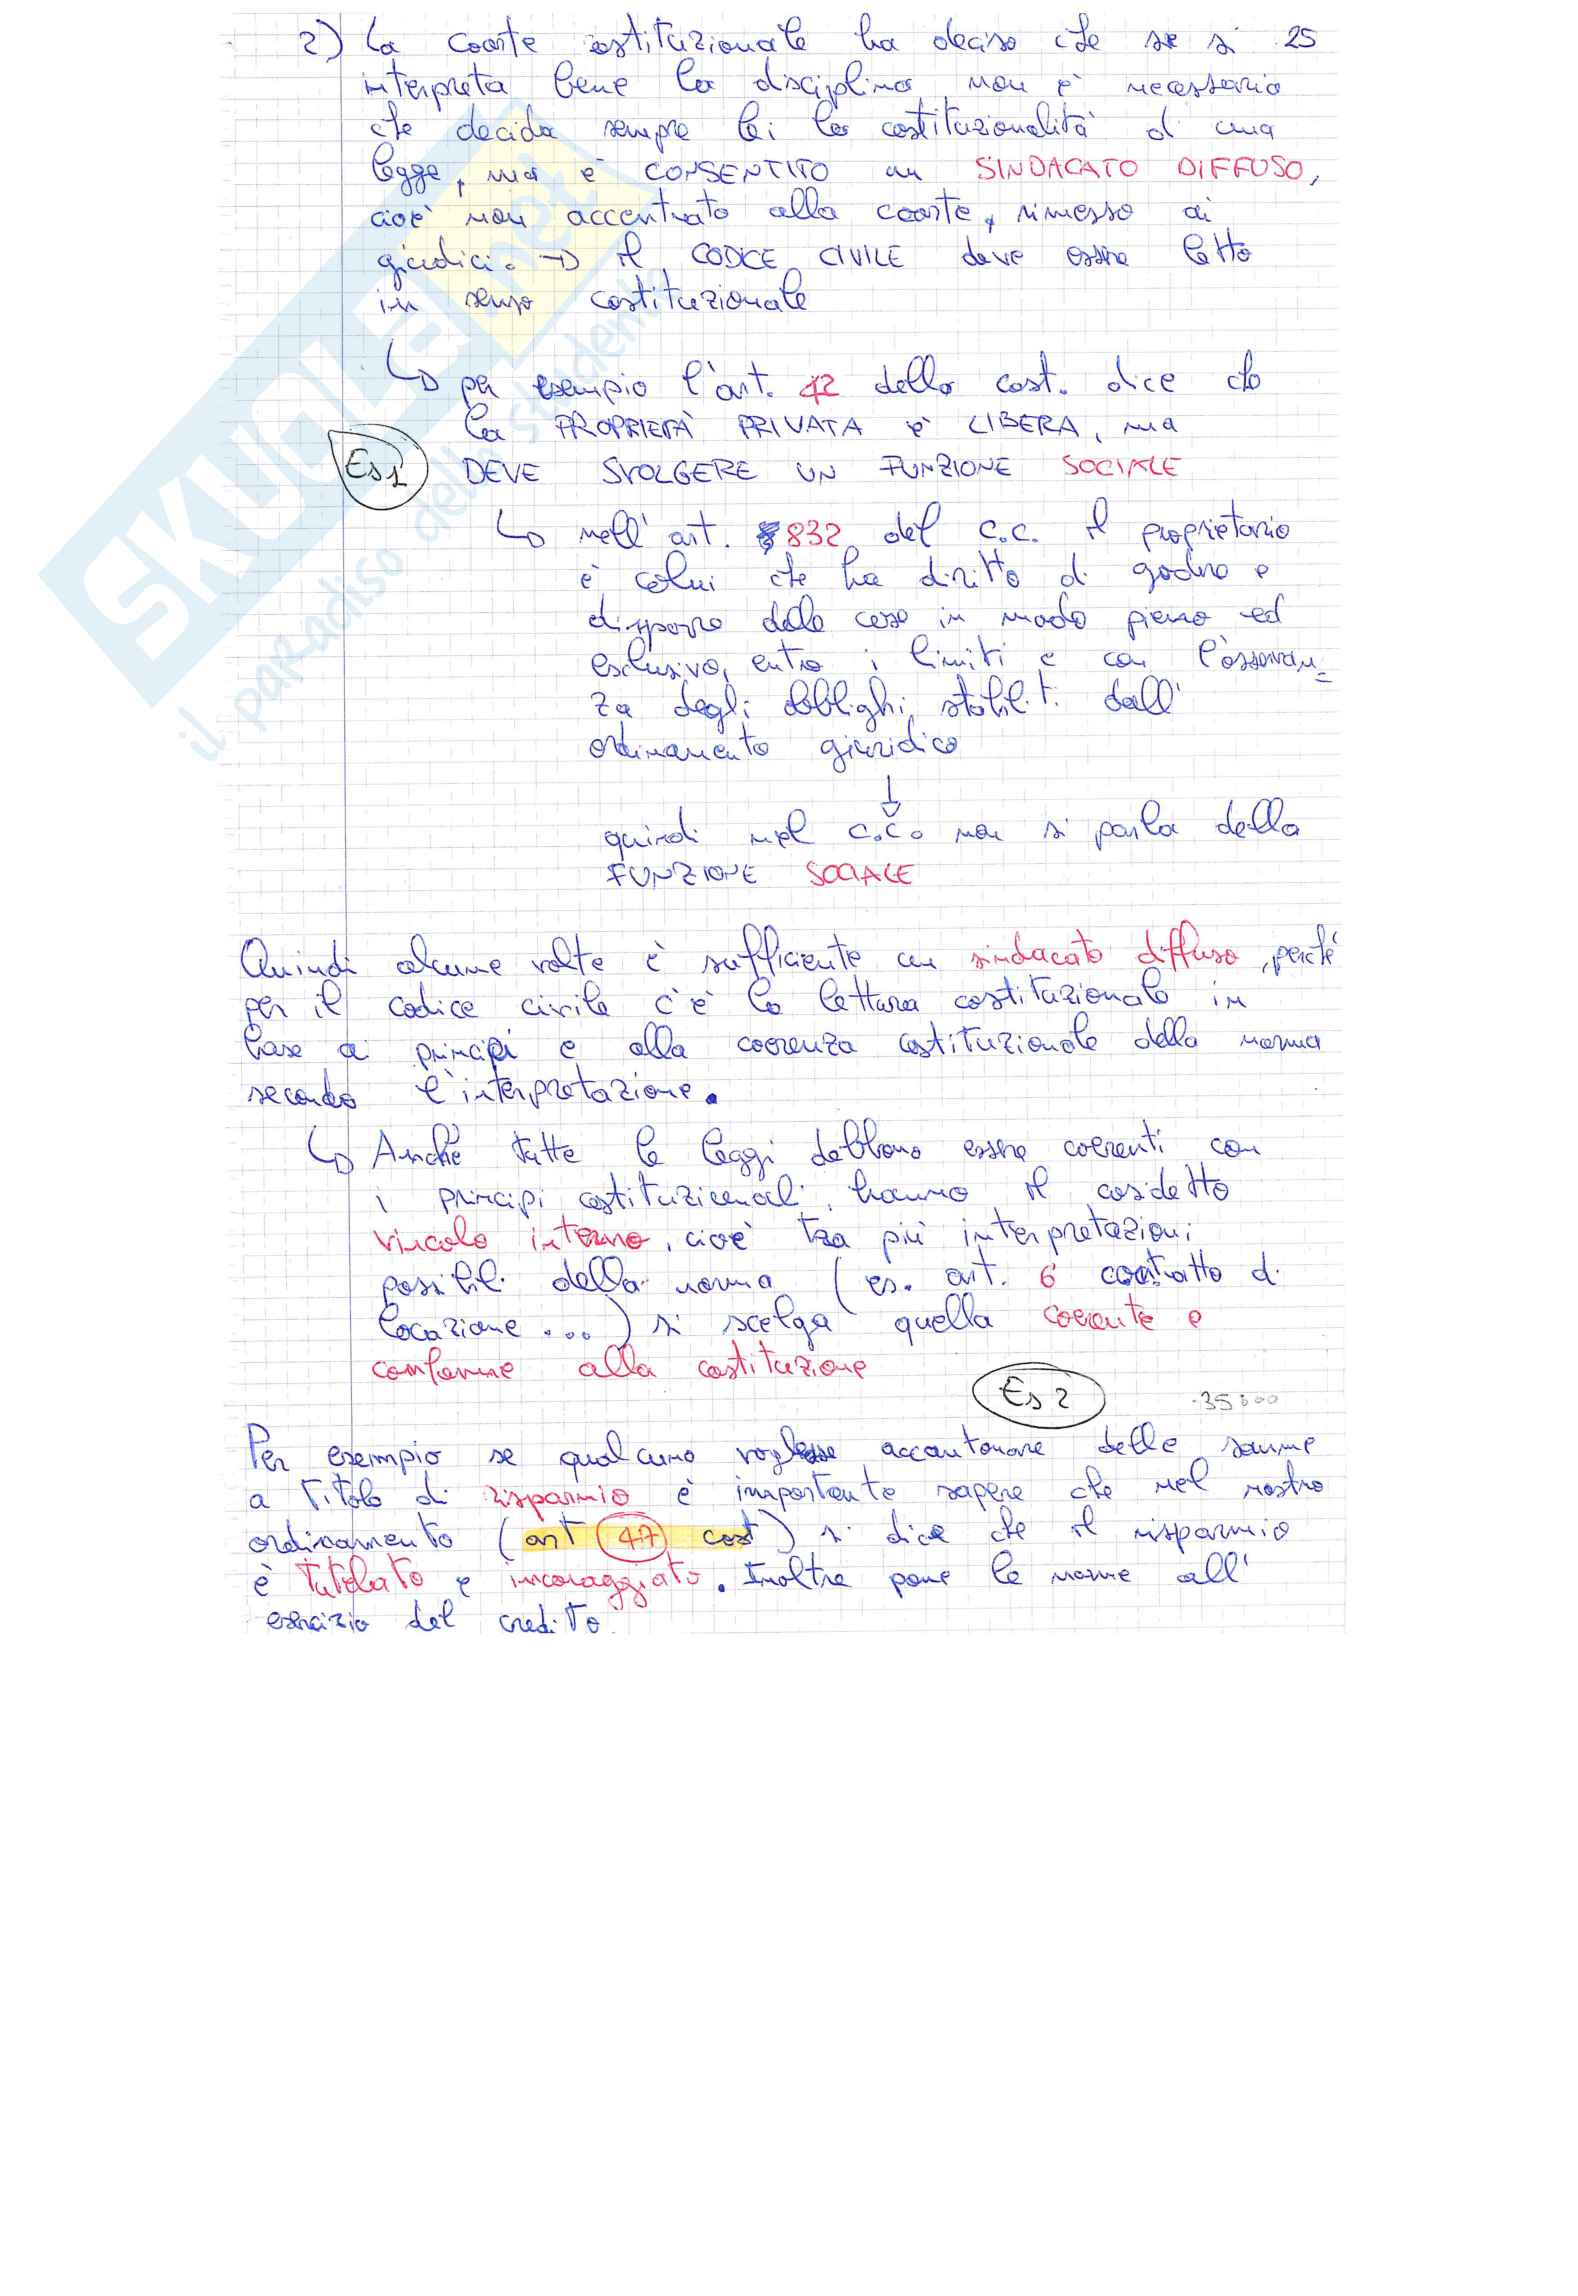 2) La Corte costituzionale ha deciso che se si 25
interpreta bene la disciplina non è necessario
che decida sempre lei la costituzionalità di una
legge, ma è CONSENTITO un SINDACATO DIFFUSO,
cioè non accentrato alla corte, rimesso ai
giudici. → il CODICE CIVILE deve essere letto
in senso costituzionale
↳ per esempio l'art. 42 della cost. dice che
la PROPRIETÀ PRIVATA è LIBERA, ma
Es 1 DEVE SVOLGERE UN FUNZIONE SOCIALE
↳ nell'art. 832 del c.c. il proprietario
è colui che ha diritto di godere e
disporre delle cose in modo pieno ed
esclusivo, entro i limiti e con l'osservan=
za degli obblighi stabiliti dall'
ordinamento giuridico
↓
quindi nel c.c. non si parla della
FUNZIONE SOCIALE
Quindi alcune volte è sufficiente un sindacato diffuso, perché
per il codice civile c'è la lettura costituzionale in
base ai principi e alla coerenza costituzionale della norma
secondo l'interpretazione.
↳ Anche tutte le leggi debbono essere coerenti con
i principi costituzionali, hanno il cosidetto
vincolo interno, cioè tra più interpretazioni
possibili della norma (es. art. 6 contratto di
locazione ...) si scelga quella coerente e
conforme alla costituzione
Es 2 35:00
Per esempio se qualcuno voglesse accantonare delle somme
a titolo di risparmio è importante sapere che nel nostro
ordinamento (art 47 cost) si dice che il risparmio
è tutelato e incoraggiato. Inoltre pone le norme all'
esercizio del credito.
SKUOLA.net
il paradiso dello studente